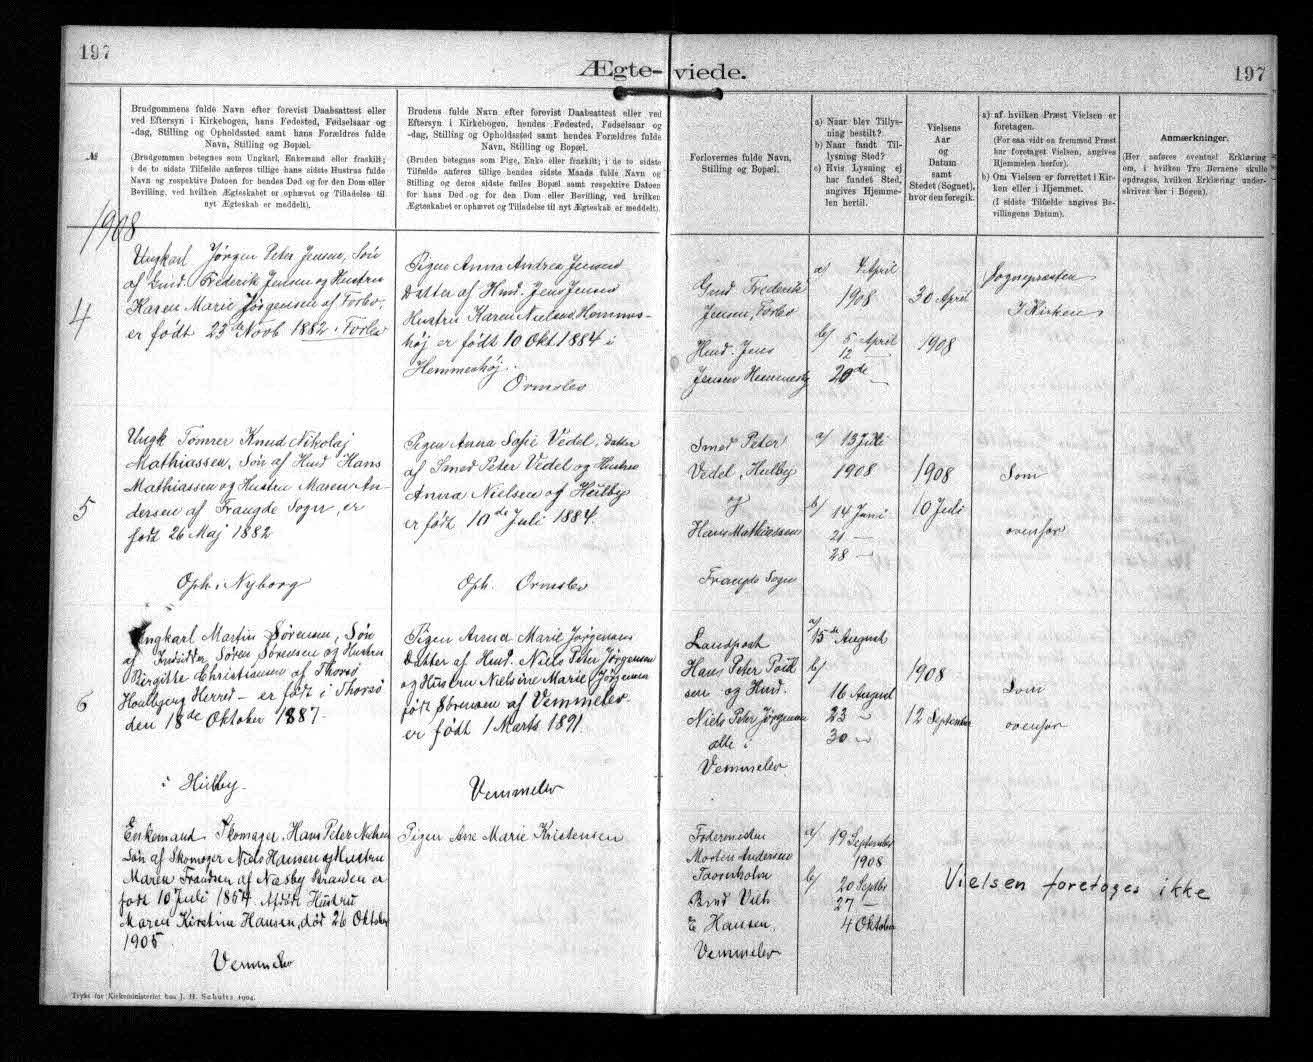 197
Ægte-viede.
197
№
Brudgommens fulde Navn efter forevist Daabsattest eller
ved Eftersyn i Kirkebogen, hans Fødested, Fødselsaar og
-dag, Stilling og Opholdssted samt hans Forældres fulde
Navn, Stilling og Bopæl.
(Brudgommen betegnes som Ungkarl, Enkemand eller fraskilt;
i de to sidste Tilfælde anføres tillige hans sidste Hustrus fulde
Navn og respektive Datoen for hendes Død og for den Dom eller
Bevilling, ved hvilken Ægteskabet er ophævet og Tilladelse til
nyt Ægteskab er meddelt).
Brudens fulde Navn efter forevist Daabsattest eller ved
Eftersyn i Kirkebogen, hendes Fødested, Fødselsaar og
-dag, Stilling og Opholdssted samt hendes Forældres fulde
Navn, Stilling og Bopæl.
(Bruden betegnes som Pige, Enke eller fraskilt; i de to sidste
Tilfælde anføres tillige hendes sidste Mands fulde Navn og
Stilling og deres sidste fælles Bopæl samt respektive Datoen
for hans Død og for den Dom eller Bevilling, ved hvilken
Ægteskabet er ophævet og Tilladelse til nyt Ægteskab er meddelt).
Forlovernes fulde Navn,
Stilling og Bopæl.
a) Naar blev Tillys-
ning bestilt?
b) Naar fandt Til-
lysning Sted?
c) Hvis Lysning ej
har fundet Sted,
angives Hjemme-
len hertil.
Vielsens
Aar
og
Datum
samt
Stedet (Sognet),
hvor den foregik.
a) af hvilken Præst Vielsen er
foretagen.
(For saa vidt en fremmed Præst
har foretaget Vielsen, angives
Hjemmelen herfor).
b) Om Vielsen er forrettet i Kir-
ken eller i Hjemmet.
(I sidste Tilfælde angives Be-
villingens Datum).
Anmærkninger.
(Her anføres eventuel Erklæring
om, i hvilken Tro Børnene skulle
opdrages, hvilken Erklæring under-
skrives her i Bogen).
1908
4
Ungkarl Jørgen Peter Jensen, Søn
af Gmd. Frederik Jensen og Hustru
Karen Marie Jørgensen af Forlev,
er født 23de Novb 1882 i Forlev
Pigen Anna Andrea Jensen
Datter af Hmd. Jens Jensen
Hustru Karen Nielsen, Hemmes-
høj er født 10 Okt 1884 i
Hemmeshøj.
Ormslev
Gmd Frederik
Jensen, Forlev
Hmd. Jens
Jensen Hemmeshj
a) 4 April
1908
b) 5 April
12 —
20de —
30 April
1908
Sognepræsten
I Kirken
5
Ungk Tømrer Knud Nikolaj
Mathiassen, Søn af Hmd Hans
Mathiassen og Hustru Maren An-
dersen af Fraugde Sogn, er
født 26 Maj 1882
Oph. i Nyborg
Pigen Anna Sofie Vedel, Datter
af Smed Peter Vedel og Hustru
Anna Nielsen af Hulby
er født 10de Juli 1884.
Oph. Ormslev
Smed Peter
Vedel, Hulby
og
Hans Mathiassen
Fraugde Sogn
a) 13 Juli
1908
b) 14 Juni
21 —
28 —
1908
10 Juli
Som
ovenfor
6
Ungkarl Martin Sørensen, Søn
af Indsidder Søren Sørensen og Hustru
Birgitte Christiansen af Thorsø
Houlbjerg Herred — er født i Thorsø
den 18de Oktober 1887.
i Hulby.
Pigen Anna Marie Jørgensen
Datter af Hmd. Niels Peter Jørgensen
og Hustru Nielsine Marie Jørgensen
født Sørensen af Vemmelev.
er født 1 Marts 1891.
Vemmelev
Landpost
Hans Peter Poul
sen og Hmd.
Niels Peter Jørgensen
alle i
Vemmelev
a) 15de August
b)
16 August
23 —
30 —
1908
12 September
Som
ovenfor
Enkemand Skomager, Hans Peter Nielsen
Søn af Skomager Niels Hansen og Hustru
Maren Frandsen af Næsby Stranden er
født 10 Juli 1854. Afdøde Hustru
Maren Kirstine Hansen, død 26 Oktober
1905
Vemmelev
Pigen Ane Marie Kristensen
Fodermester
Morten Andersen
Taarnholm
E Hansen,
Vemmelev
a) 19 September
1908
b) 20 Septbr
27 —
4 Oktober
Vielsen foretages ikke
Trykt for Kirkeministeriet hos J. H. Schultz 1904.